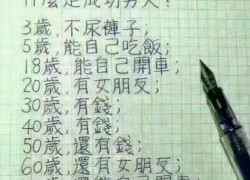 什麼是成功男人?
3歲,不尿褲子;
5歲,能自己吃飯;
18歲,能自己開車;
20歲,有女朋友;
30歲,有錢;
40歲,有錢;
50歲,還有錢;
60歲,還有女朋友;
還能自己開車;